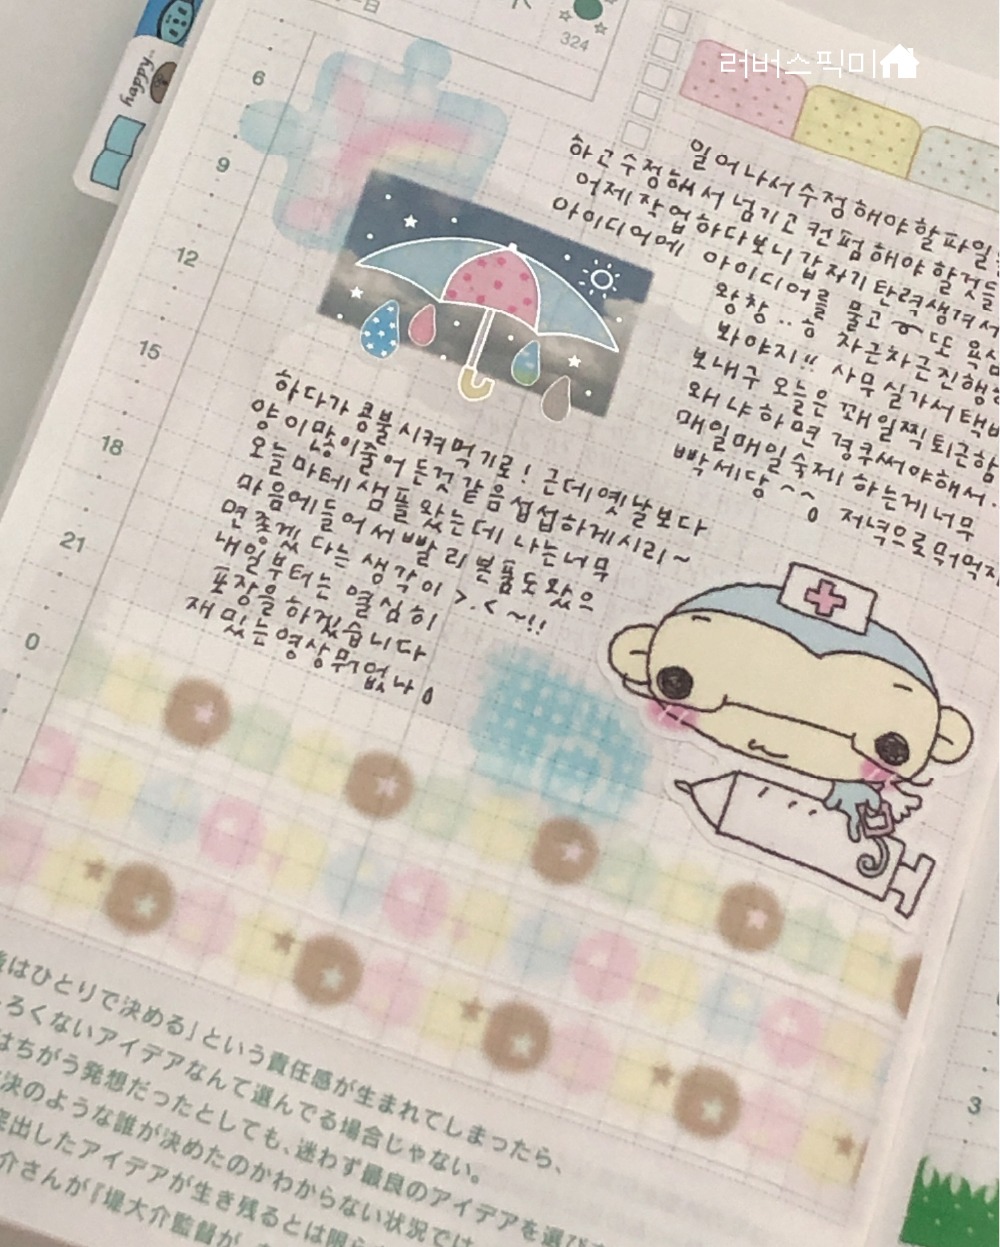 一日
324
러버스픽미
happy
6
9
12
15
18
21
0
3
일어나서 수정해야할파일
하고 수정해서 넘기고 컨펌해야할것들
어제작업하다보니 갑자기 탄력생겨서
아이디어에 아이디어를 물고 또 욕심
왕창.. 흥 차근차근진행
봐야지!! 사무실가서택배
보내구 오늘은 꽤일찍퇴근함
왜냐하면 경쿠써야해서.
매일매일숙제하는게너무
빡세당^^ 저녁으로뭐먹지
하다가 콩불시켜먹기로! 근데옛날보다
양이많이줄어든것같음섭섭하게시리~
오늘마테샘플왔는데 나는너무
마음에들어서빨리본품도왔으
면좋겠다는생각이 >.<~!!
내일부터는열심히
포장을하겠습니다
재밌는영상뭐없나
はひとりで決める」という責任感が生まれてしまったら、
ろくないアイデアなんて選んでる場合じゃない。
はちがう発想だったとしても、迷わず最良のアイデアを選び
決のような誰が決めたのかわからない状況では
突出したアイデアが生き残るとは限ら
介さんが『堤大介監督が